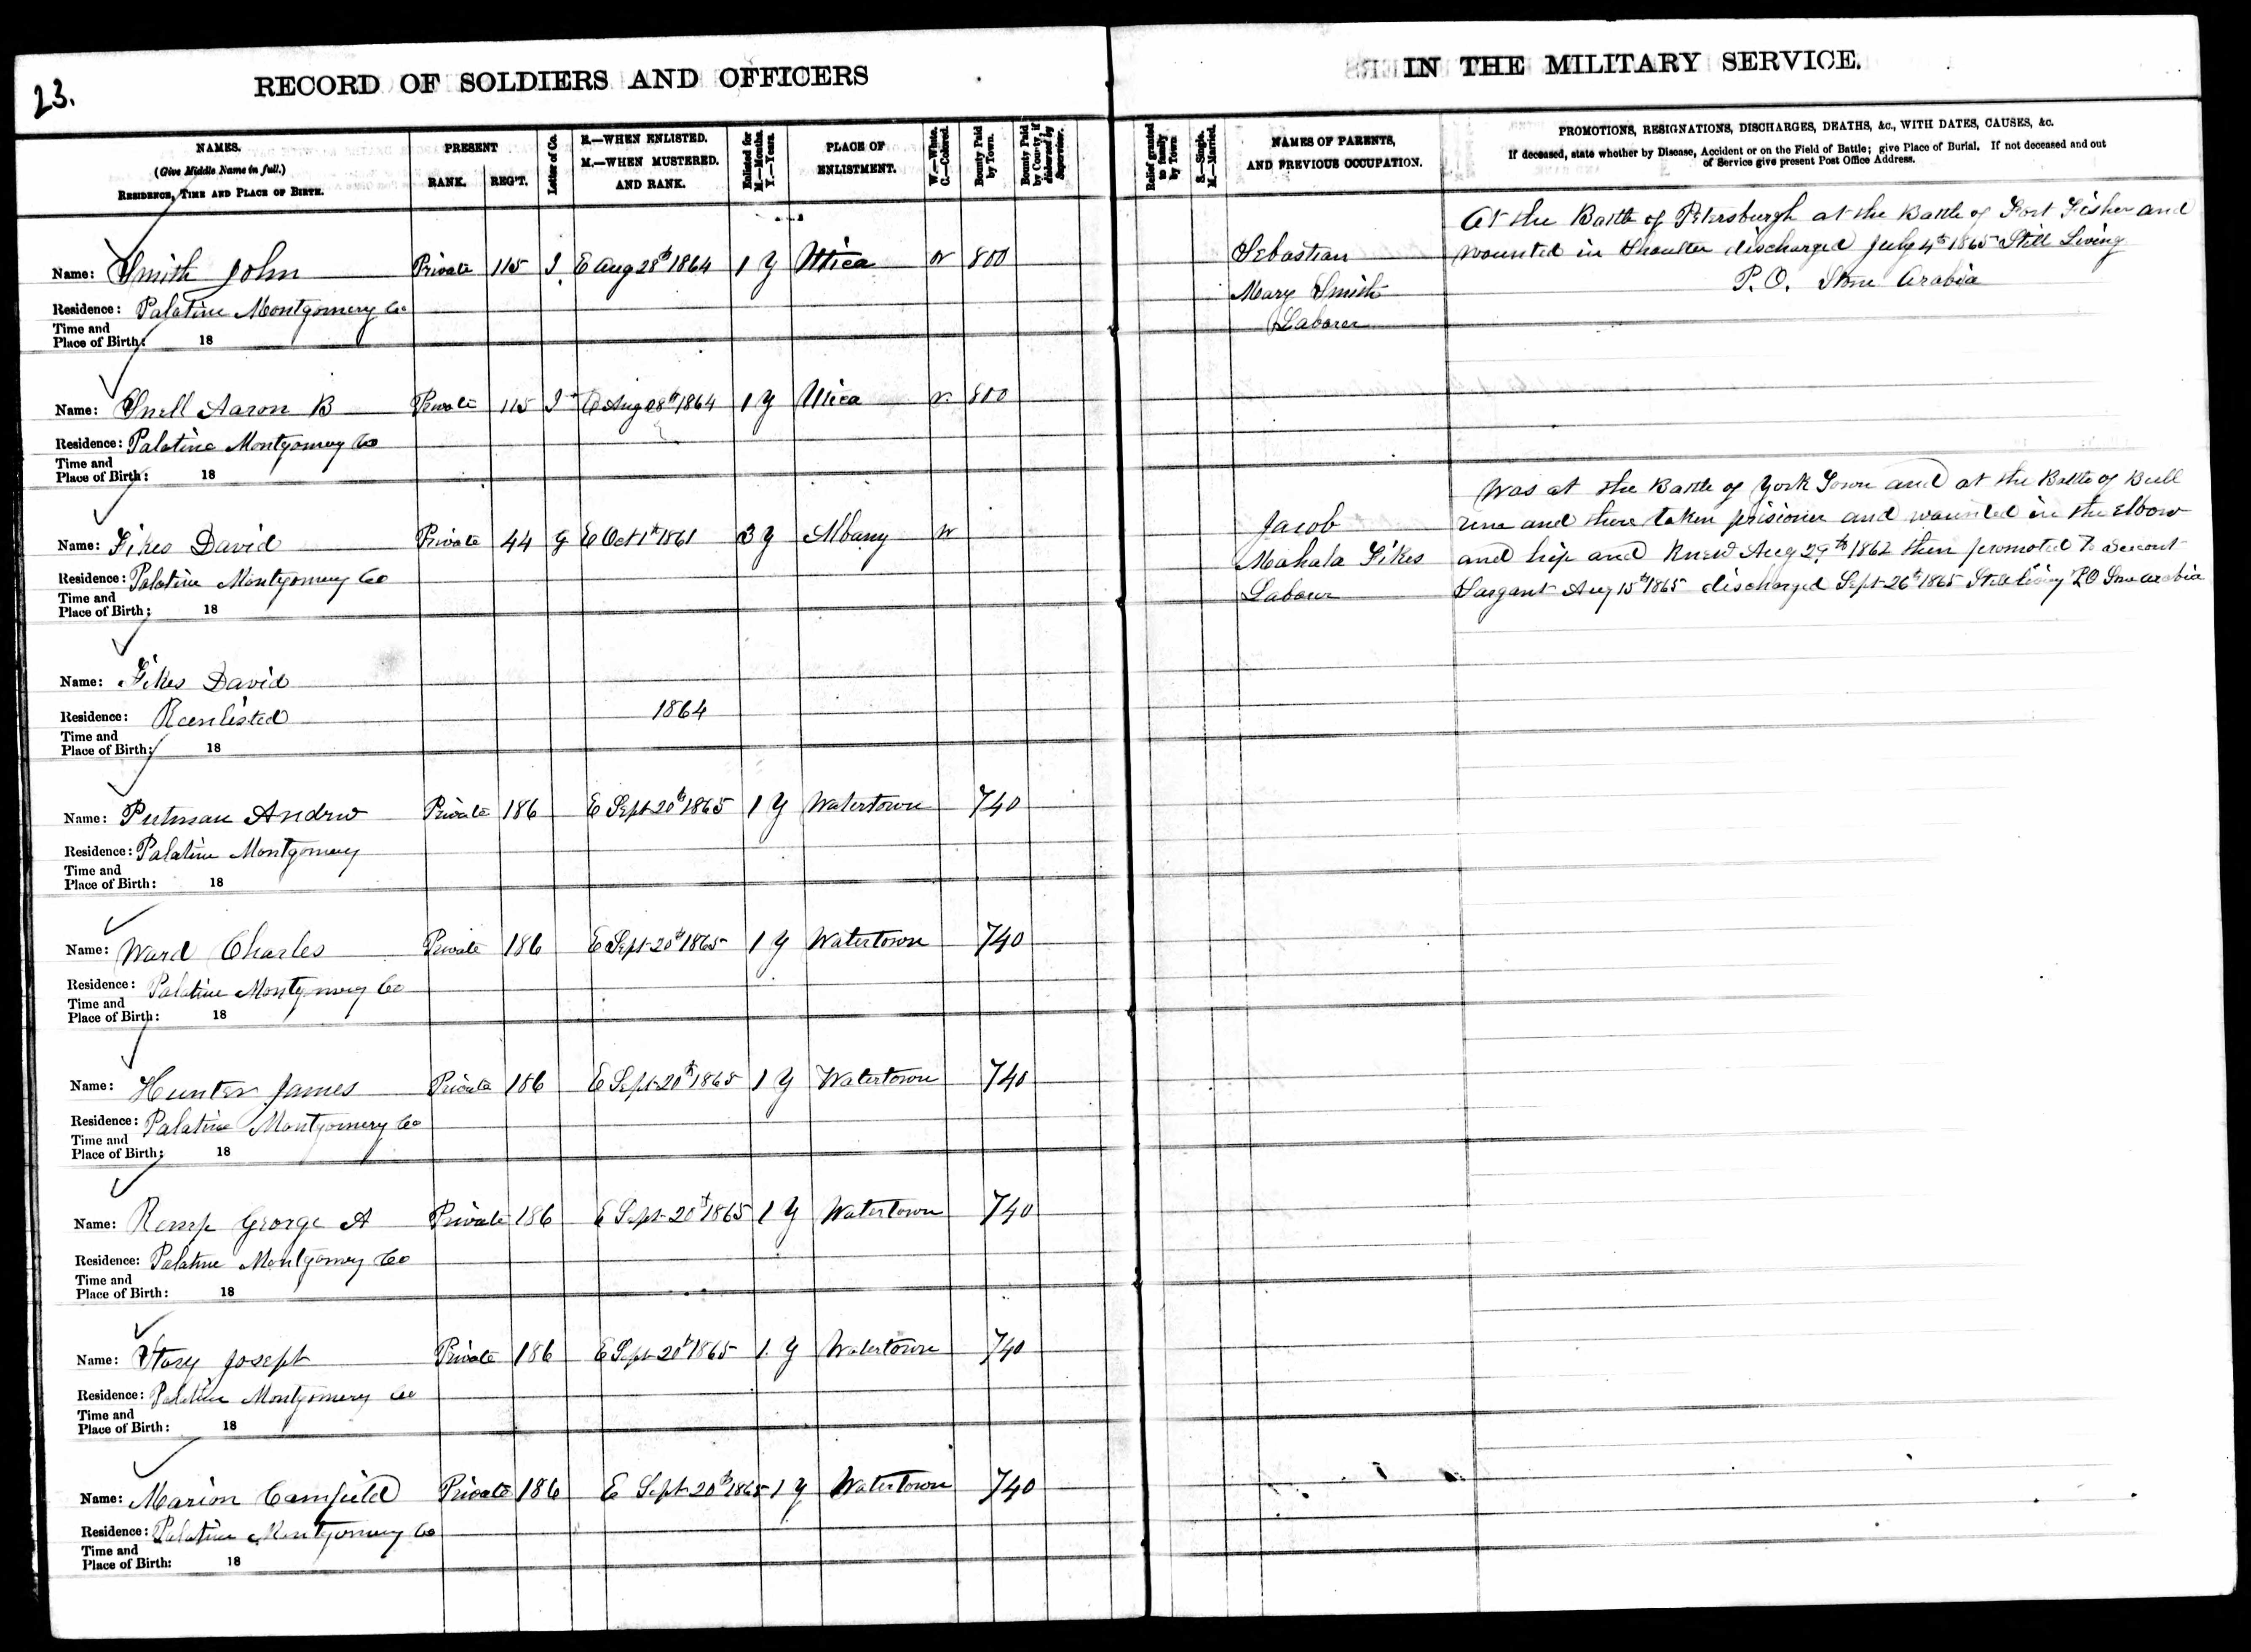 23.
RECORD OF SOLDIERS AND OFFICERS IN THE MILITARY SERVICE.
NAMES.
(Give Middle Name in full.)
RESIDENCE, TIME AND PLACE OF BIRTH.
PRESENT
RANK. REG'T.
Letter of Co.
E.—WHEN ENLISTED.
M.—WHEN MUSTERED.
AND RANK.
Enlisted for
M.—Months.
Y.—Years.
PLACE OF
ENLISTMENT.
W.—White.
C.—Colored.
Bounty Paid
by Town.
Bounty Paid
by County, if
disbursed by
Supervisor.
Relief granted
to family
by Town.
S.—Single.
M.—Married.
NAMES OF PARENTS,
AND PREVIOUS OCCUPATION.
PROMOTIONS, RESIGNATIONS, DISCHARGES, DEATHS, &c., WITH DATES, CAUSES, &c.
If deceased, state whether by Disease, Accident or on the Field of Battle; give Place of Burial. If not deceased and out
of Service give present Post Office Address.
At the Battle of Petersburgh at the Battle of Fort Fisher and
Name: Smith John Private 115 I E Aug 28th 1864 1 Y Utica W 800 Sebastian wounted in Shoulter discharged July 4th 1865 Still Living
Residence: Palatine Montgomery Co Mary Smith P.O. Stone Arabia
Time and Laborer
Place of Birth: 18
Name: Snell Aaron B Private 115 I E Aug 28th 1864 1 Y Utica W 800
Residence: Palatine Montgomery Co
Time and
Place of Birth: 18
Was at the Battle of York Town and at the Battle of Bull
Name: Fikes David Private 44 G E Oct 1th 1861 3 Y Albany W Jacob rune and there taken prisioner and wounted in the Elbow
Residence: Palatine Montgomery Co Mahala Fikes and hip and Aug 29th 1862 then promoted to
Time and Labour Sargant Aug 15th 1865 discharged Sept 26th 1865 Still living P.O Stone arabia
Place of Birth: 18
Name: Fikes David
Residence: Reenlisted 1864
Time and
Place of Birth: 18
Name: Putman Andrw Private 186 E Sept 20th 1865 1 Y Watertown 740
Residence: Palatine Montgomery
Time and
Place of Birth: 18
Name: Ward Charles Private 186 E Sept 20th 1865 1 Y Watertown 740
Residence: Palatine Montgomery Co
Time and
Place of Birth: 18
Name: Hunter James Private 186 E Sept 20th 1865 1 Y Watertown 740
Residence: Palatine Montgomery Co
Time and
Place of Birth: 18
Name: Remp George A Private 186 E Sept 20th 1865 1 Y Watertown 740
Residence: Palatine Montgomery Co
Time and
Place of Birth: 18
Name: Story Joseph Private 186 E Sept 20th 1865 1 Y Watertown 740
Residence: Palatine Montgomery Co
Time and
Place of Birth: 18
Name: Marion Camfield Private 186 E Sept 20th 1865 1 Y Watertown 740
Residence: Palatine Montgomery Co
Time and
Place of Birth: 18